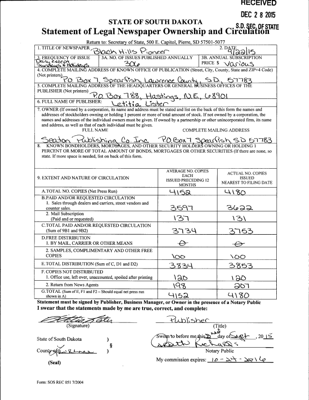 RECEIVED
DEC 28 2015
S.D. SEC. OF STATE
STATE OF SOUTH DAKOTA
Statement of Legal Newspaper Ownership and Circulation
Return to: Secretary of State, 500 E. Capitol, Pierre, SD 57501-5077
1. TITLE OF NEWSPAPER Black Hills Pioneer
2. DATE 9/22/15
3. FREQUENCY OF ISSUE
3A. NO. OF ISSUES PUBLISHED ANNUALLY 306
3B. ANNUAL SUBSCRIPTION PRICE $ Various
4. COMPLETE MAILING ADDRESS OF KNOWN OFFICE OF PUBLICATION (Street, City, County, State and ZIP+4 Code) (Not printers)
PO Box 7 Spearfish Lawrence County SD, 57783
5. COMPLETE MAILING ADDRESS OF THE HEADQUARTERS OR GENERAL BUSINESS OFFICES OF THE PUBLISHER (Not printers)
PO Box 788, Hastings, NE, 68901
6. FULL NAME OF PUBLISHER:
Letitia Lister
7. OWNER (If owned by a corporation, its name and address must be stated and also
FULL NAME
COMPLETE MAILING ADDRESS
Seaton Publishing Co Inc. PO Box 7 Spearfish SD 57783
8. KNOWN BONDHOLDERS, MORTGAGES, AND OTHER SECURITY HOLDERS OWNING OR HOLDING 1 PERCENT OR MORE OF TOTAL AMOUNT OF BONDS, MORTGAGES OR OTHER SECURITIES (If there are none, so state. If more space is needed, list on back of this form.
9. EXTENT AND NATURE OF CIRCULATION
AVERAGE NO. COPIES EACH ISSUED PRECEDING 12 MONTHS
ACTUAL NO. COPIES ISSUED NEAREST TO FILING DATE
A. TOTAL NO. COPIES (Net Press Run) 4152 4180
B. PAID AND/OR REQUESTED CIRCULATION
1. Sales through dealers and carriers, street vendors and counter sales 3597 3622
2. Mail Subscription (Paid and or requested) 137 131
C. TOTAL PAID AND/OR REQUESTED CIRCULATION (Sum of 9B1 and 9B2) 3734 3753
D. FREE DISTRIBUTION
1. BY MAIL, CARRIER OR OTHER MEANS
2. SAMPLES, COMPLIMENTARY AND OTHER FREE COPIES 100 100
E. TOTAL DISTRIBUTION (Sum of C, D1 and D2) 3834 3853
F. COPIES NOT DISTRIBUTED
1. Office use, left over, unaccounted, spoiled after printing 120 120
2. Return from News Agents 198 207
G. TOTAL (Sum of E, F1 and F2 – Should equal net press run shown in A) 4152 4180
Statement must be signed by Publisher, Business Manager, or Owner in the presence of a Notary Public
I swear that the statements made by me are true, correct, and complete:
Publisher
(Signature)
(Title)
State of South Dakota )
County of
(Seal)
Sworn to before me day of Sept, 2015
Notary Public
My commission expires: 10-24-2016
Form: SOS REC 051 7/2004